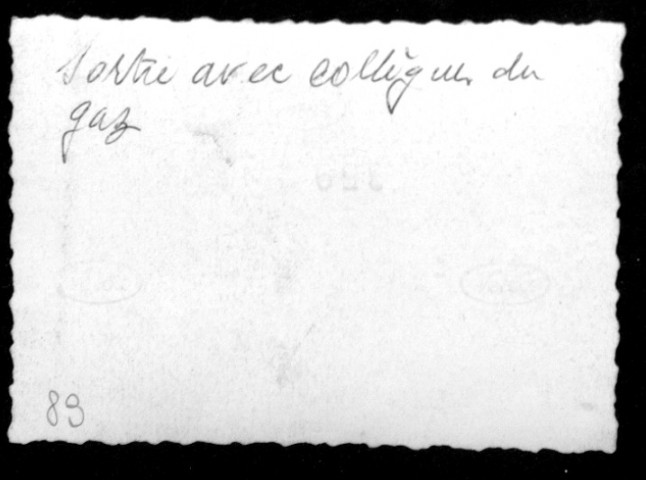 Sortie avec collègues du
gaz
89